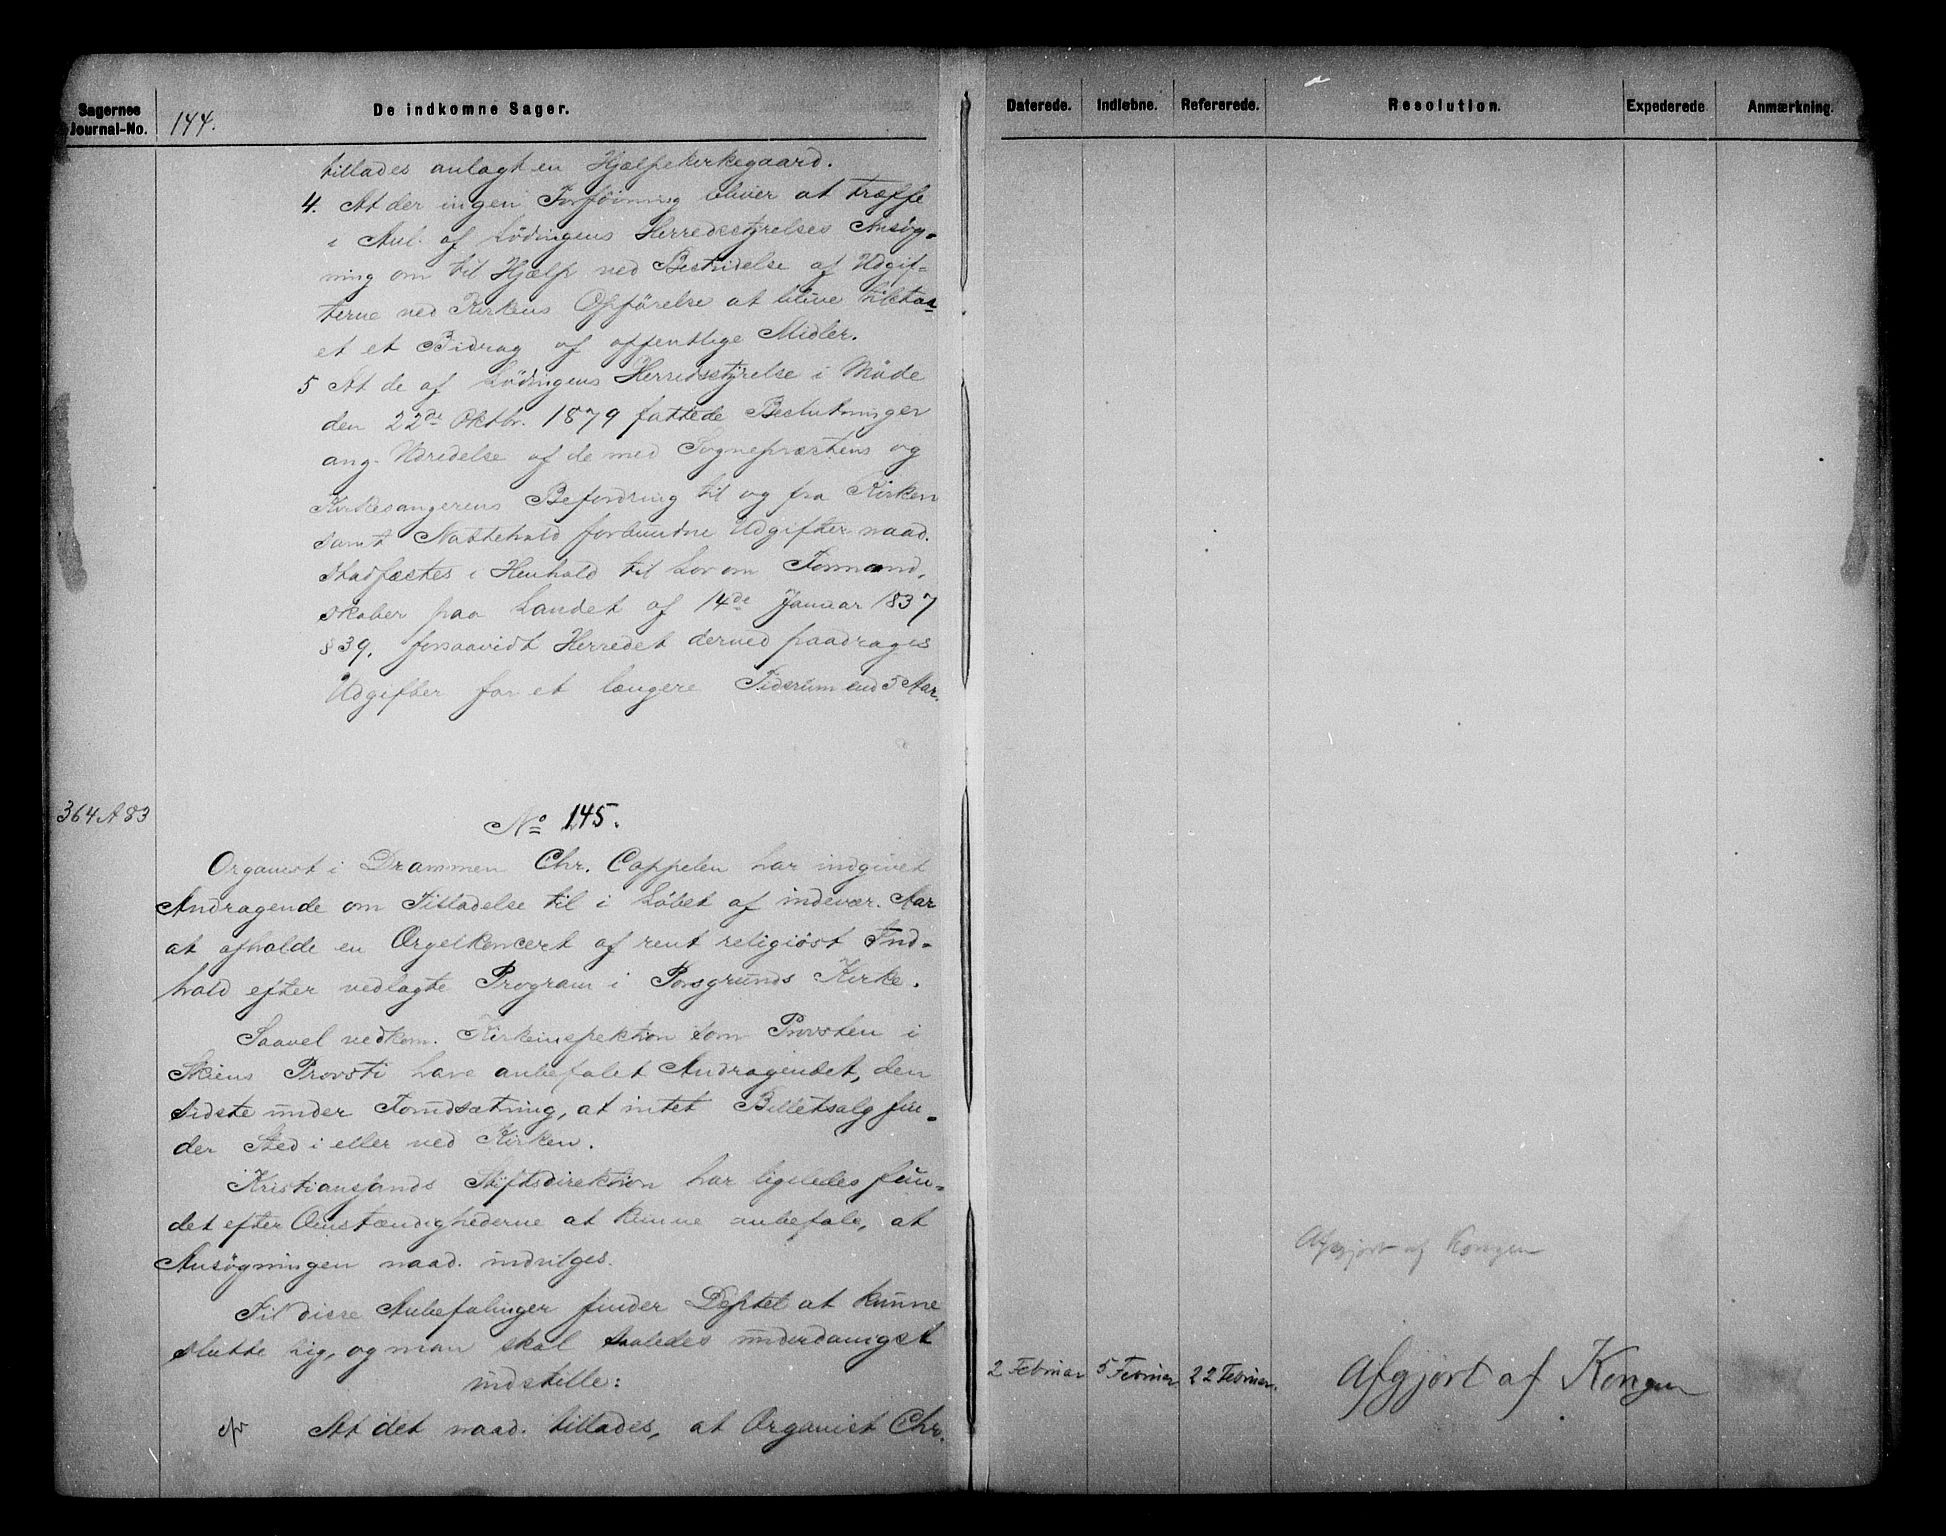 Sagernes
Journal-No.
144.
De indkomne Sager.
Daterede.
Indløbne.
Refererede.
Resolution.
Expederede
Anmærkning.
tillades anlagt en Hjælpekirkegaard.
4. At der ingen Forføining bliver at træffe
i Anl. af Lødingens Herredsstyrelses Ansøg-
ning om til Hjælp ved Bestridelse af Udgif-
terne ved Kirkens Opførelse at blive tilstaa-
et et Bidrag af offentlige Midler.
5 At de af Lødingens Herredsstyrelse i Møde
den 22de Oktbr. 1879 fattede Beslutninger
ang. Udredelse af de med Sognepræstens og
Kirkesangerens Befordring til og fra Kirken
samt Nattehold forbundne Udgifter naad.
stadfæstes i Henhold til Lov om Formand,
skaber paa Landet af 14de Januar 1837
§ 39, forsaavidt Herredet derved paadrages
Udgifter for et længere Tidsrum end 5 Aar.
364 A 83
No 145.
Organist i Drammen Chr. Cappelen har indgivet
Andragende om Tilladelse til i Løbet af indevær. Aar
at afholde en Orgelkoncert af rent religiøst Ind-
hold efter vedlagte Program i Porsgrunds Kirke.
Saavel vedkom. Kirkeinspektion som Provsten i
Skiens Provsti have anbefalet Andragendet, den
sidste under Forudsætning, at intet Billetsalg fin-
der Sted i eller ved Kirken.
Kristiansands Stiftsdirektion har ligeledes fun-
det efter Omstændighederne at kunne anbefale, at
Ansøgningen naad. indvilges.
Til disse Anbefalinger finder Deptet at kunne
slutte sig, og man skal saaledes underdanigst
indstille:
At det naad. tillades, at Organist Chr.
2 Februar
5 Februar
22 Februar.
Afgjort af Kongen
Afgjort af Kongen